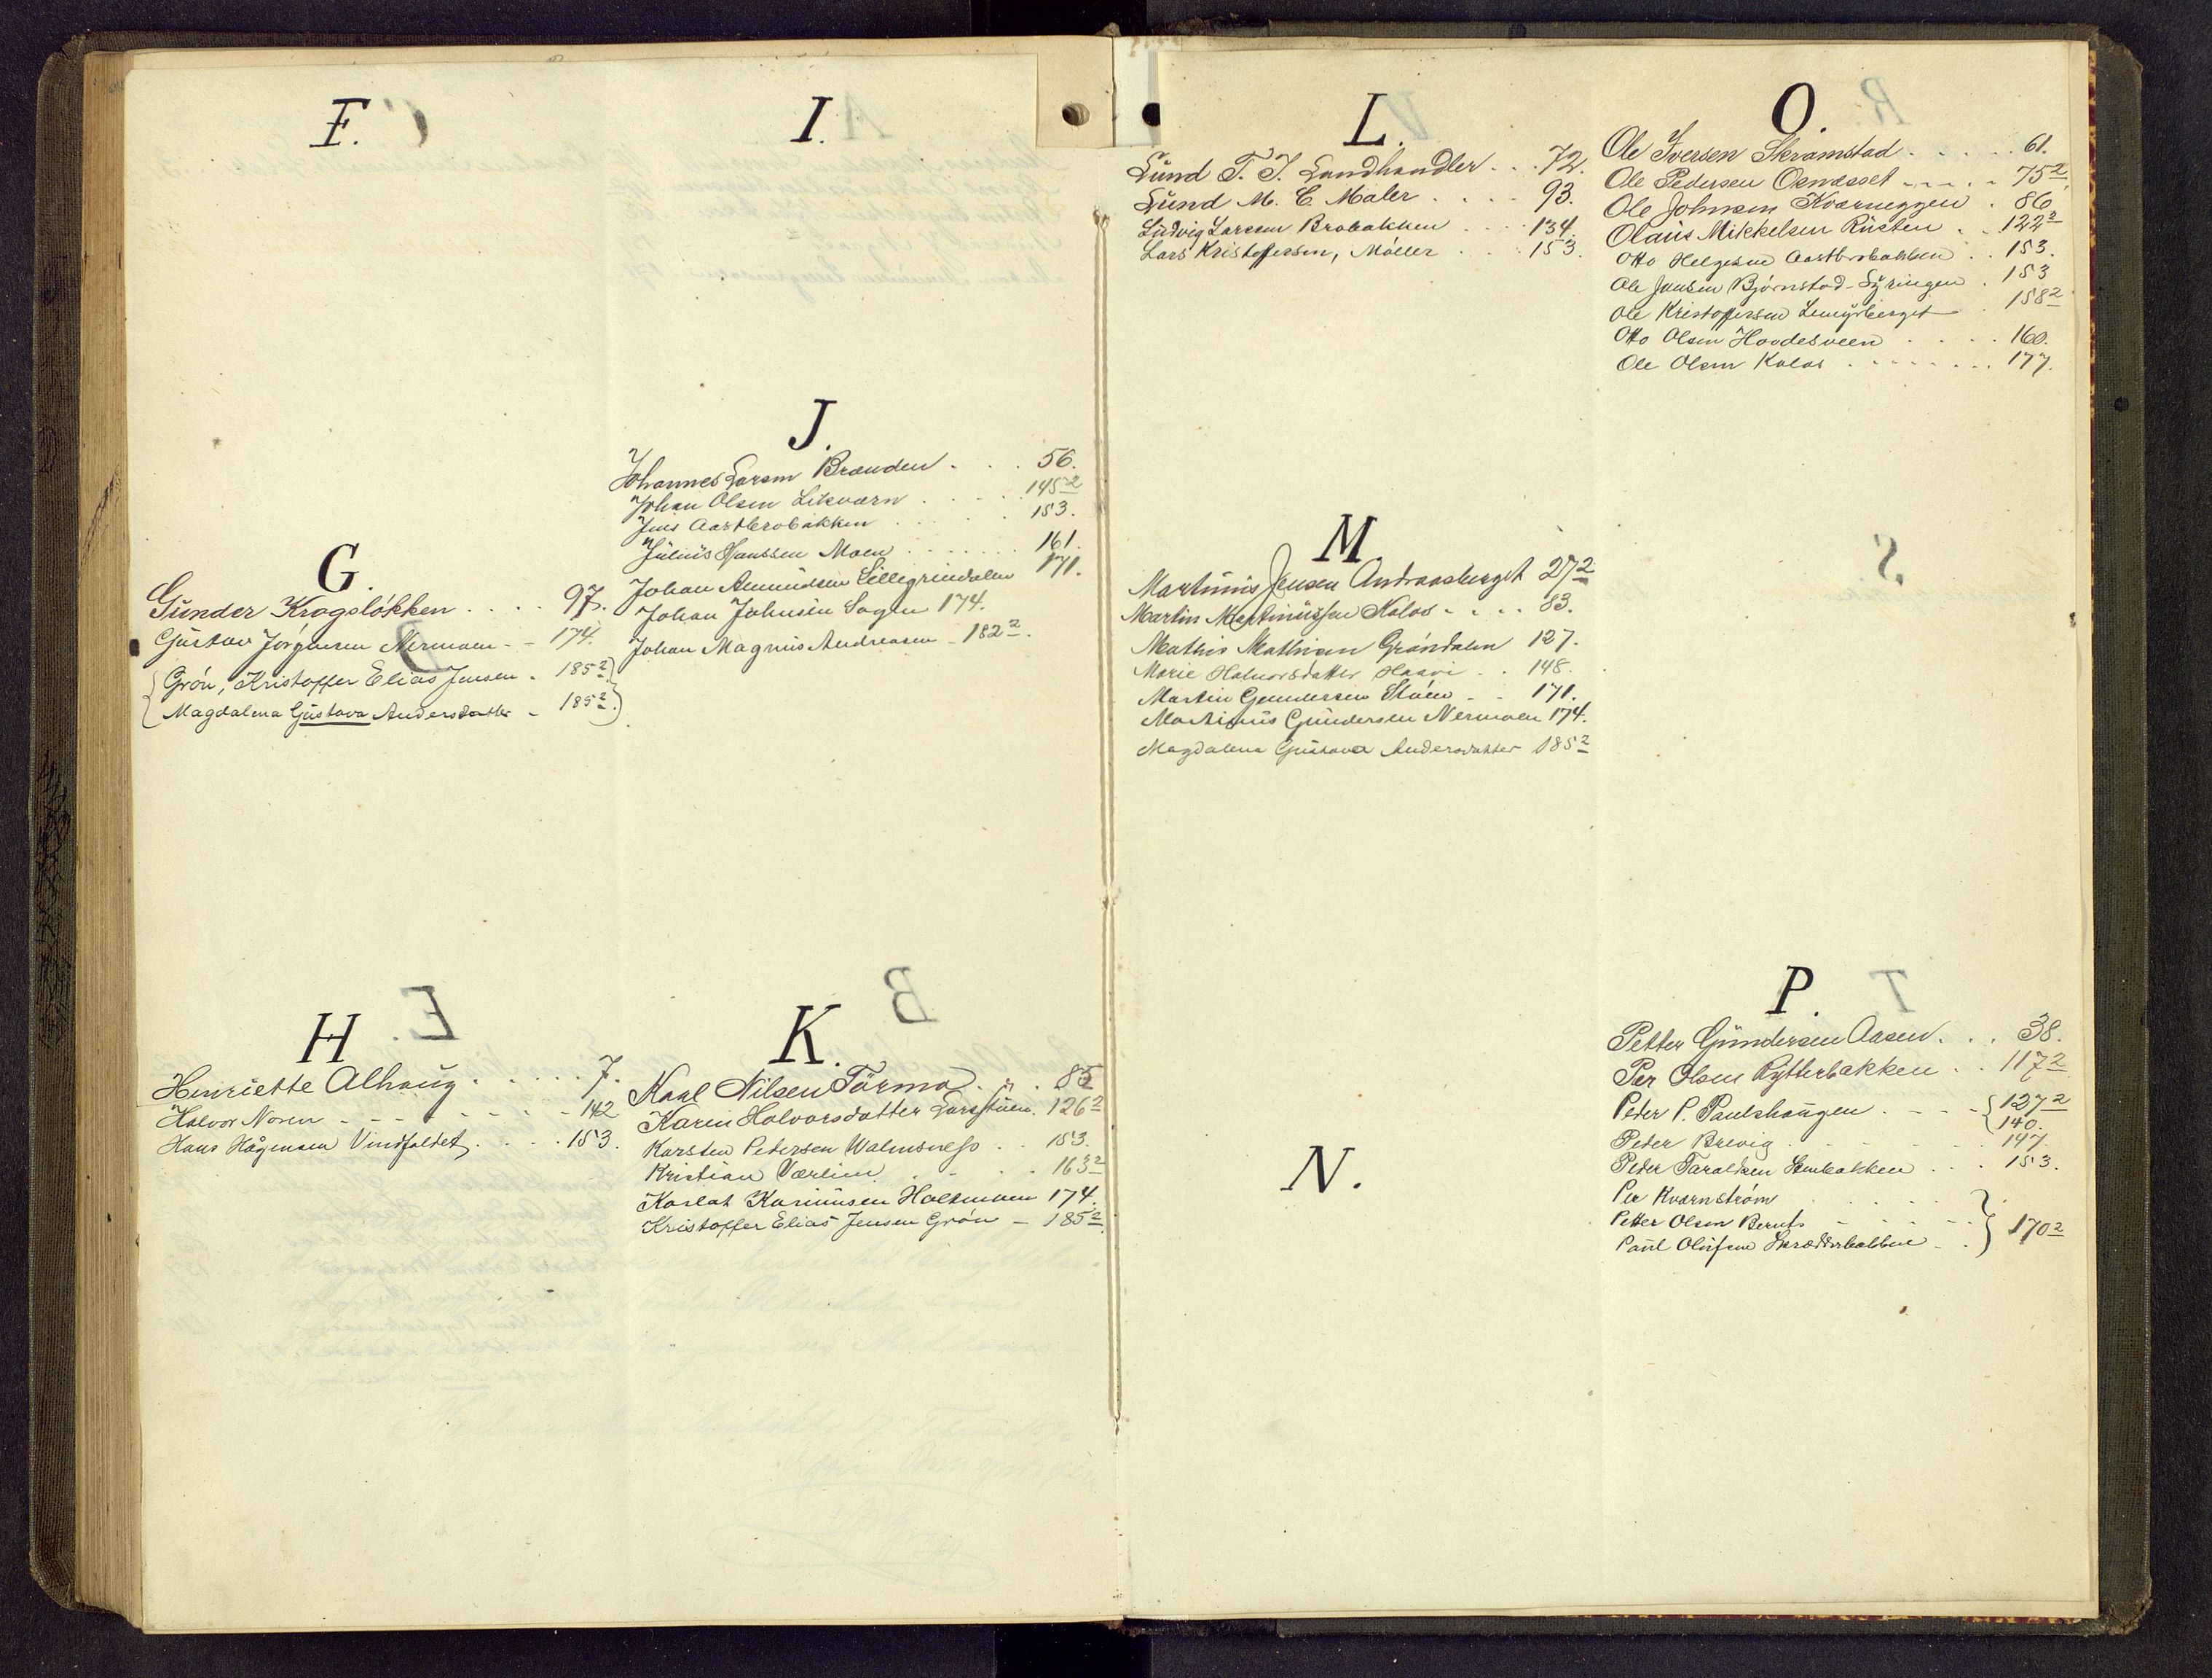 F.
G.
Gunder Kragsløkken . . . . 97.
Gustav Jørgensen Nermoen - - 174.
Grøn, Kristoffer Elias Jensen . 185²
Magdalena Gustava Andersdatter - 185²
H
Henriette Alhaug . . . . . 7.
Halvor Noren - - - - - - 142
Hans Hågensen Vindfaldet . . . . 153.
I.
J.
Johannes Larsen Brænden . . . 56.
Johan Olsen Lilkværn . . . . 145²
Jens Aastbrobakken . . . . . 153.
Julius Hanssen Moen . . . . . . . 161.
Johan Amundsen Lillegrindalen 171.
Johan Johnsen Sagen 174.
Johan Magnus Andreasen - 182².
K.
Karl Nilsen Tørmo . " . 85
Karen Halvorsdatter Larsstuen. 126²
Karsten Pedersen Walmsness . . 153.
Kristian Værlien . . . . 163²
Karlot Kariussen Haltmoen 174.
Kristoffer Elias Jensen Grøn - 185²
L.
Lund T. J. Landhandler . . . 72.
Lund M. C. Maler . . . . 93.
Ludvig Larssen Brobakken . . . . 134.
Lars Kristoffersen, Møller . . . 153.
M.
Martinus Jensen Andraasberget 27²
Martin Martinussen Kolos - . . . 83.
Mathis Mathisen Grøndalen 127.
Marie Halvorsdatter Haavi . . 148.
Martin Gundersen Støen - - 171.
Martinus Gundersen Nermoen 174.
Magdalena Gustava Andersdatter 185²
N.
O.
Ole Iversen Skramstad . . . . . 61.
Ole Pedersen Osnæsset - - - . - 75²
Ole Johnsen Kværneggen . 86
Olaus Mikkelsen Rusten . . 122²
Otto Helgesen Aastbrobakken . . 153.
Ole Jensen Bjørnstad-Syringen . 153
Ole Kristoffersen Lemyrberget . 158²
Otto Olsen Hovdesveen . . . . . 160.
Ole Olsen Kolos . - - - - . . . 177.
P.
Petter Gundersen Aasen . . . 38.
Per Olsen Rytterbakken . . 117²
Peder P. Paulshaugen . - - - 127²
140.
Peder Brevig . - - - - - 147.
Peder Taraldsen Stenbakken . . . 153.
Per Kvarnstrøm . . . . .
Petter Olsen Beruts - - - - - - 170²
Paul Olufsen Skrædderbakken - .